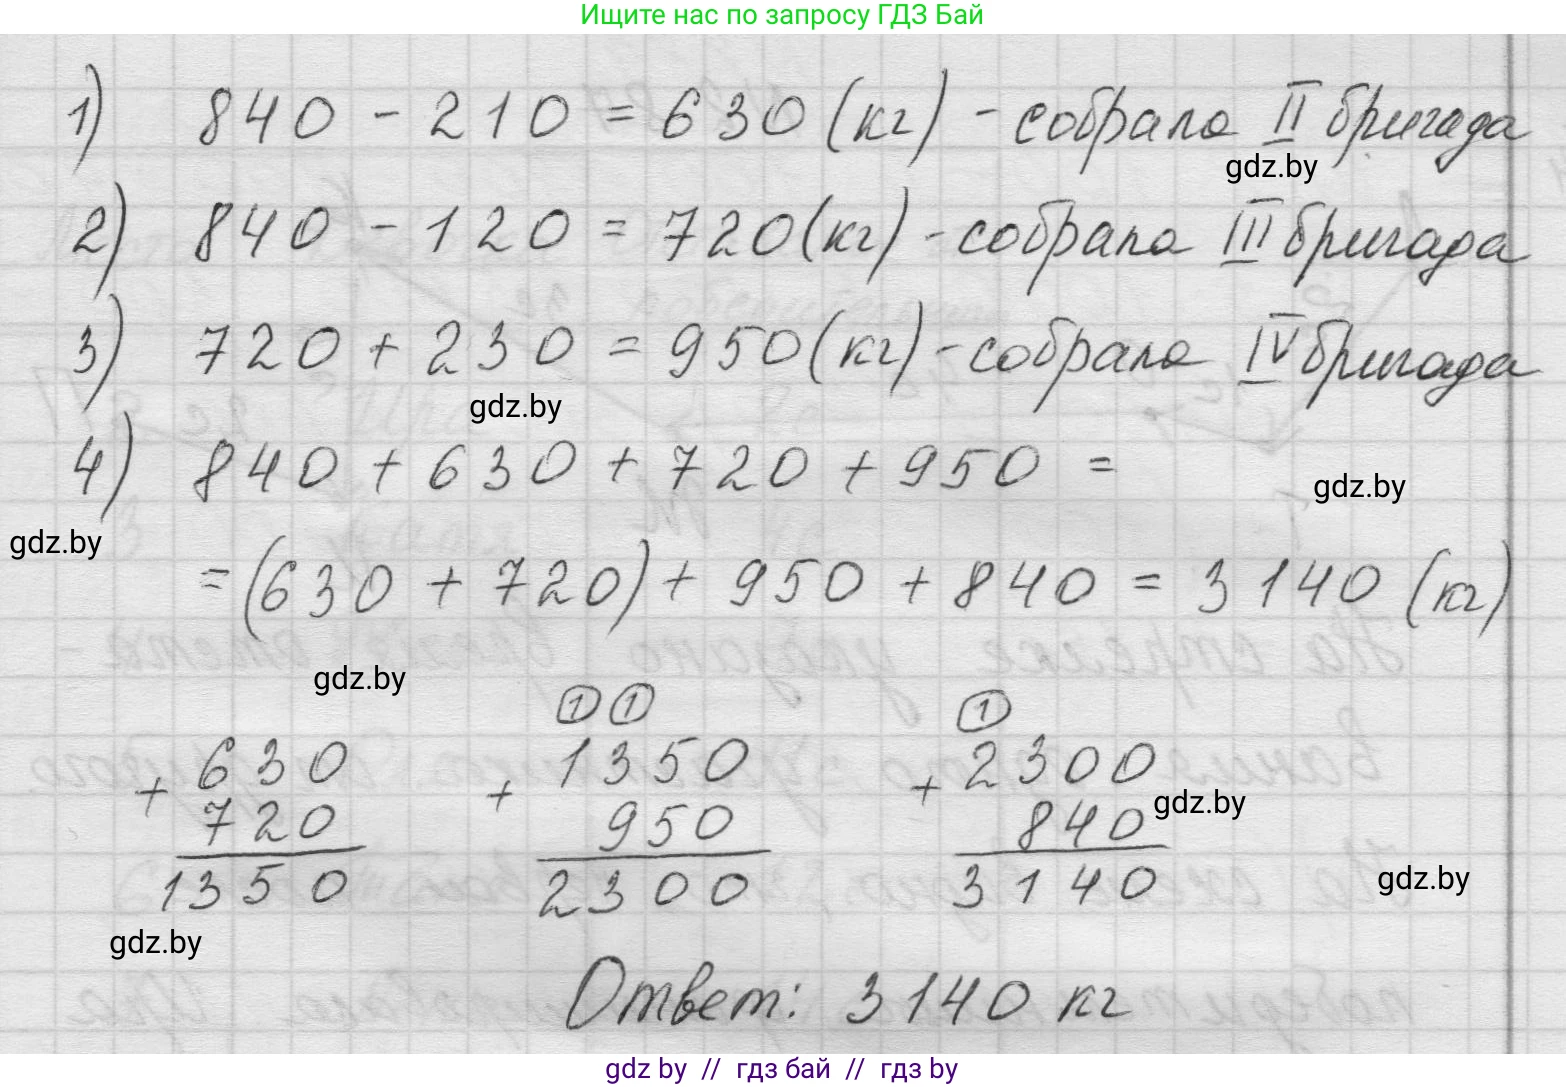 Ищите нас по запросу ГДЗ Бай
1) 840 - 210 = 630 (кг) - собрала II бригада
gdz.by
2) 840 - 120 = 720 (кг) - собрала III бригада
3) 720 + 230 = 950 (кг) - собрала IV бригада
gdz.by
4) 840 + 630 + 720 + 950 =
gdz.by
gdz.by
= (630 + 720) + 950 + 840 = 3140 (кг)
gdz.by
1 1 1
+ 630 + 1350 + 2300
gdz.by
720 950 840
1350 2300 3140
gdz.by
gdz.by
Ответ: 3140 кг
gdz by // гдз бай // гдз by